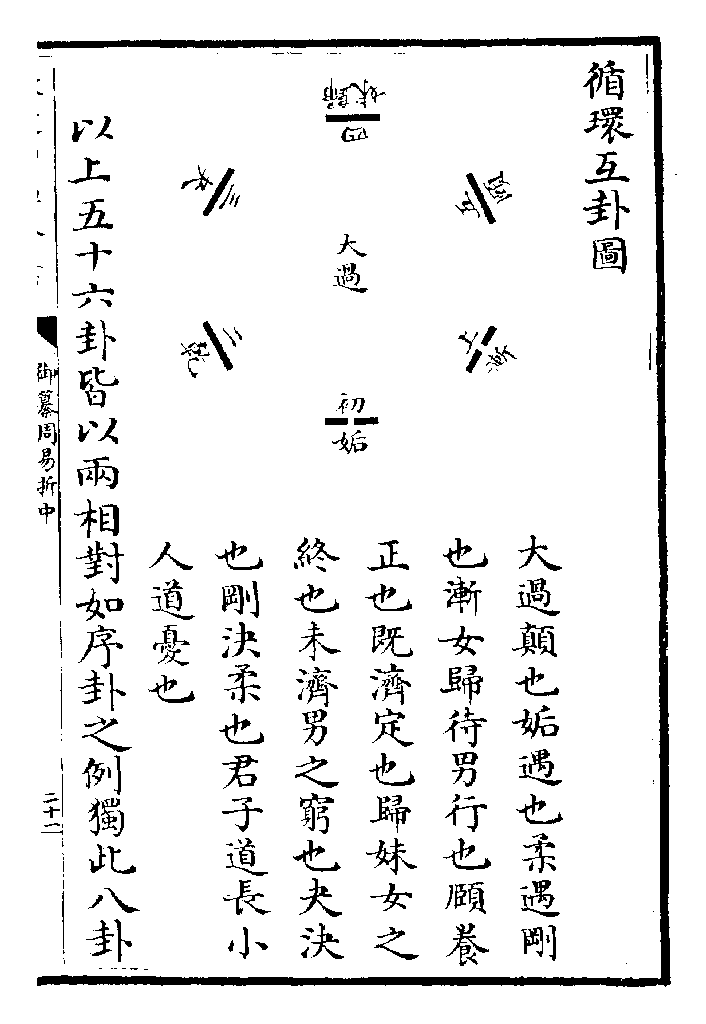 循環互卦圖
大過
初
姤
上
漸
五
頤
四
歸妹
三
夬
二
大過顛也姤遇也柔遇剛
也漸女歸待男行也頤養
正也既濟定也歸妹女之
終也未濟男之窮也夬決
也剛決柔也君子道長小
人道憂也
以上五十六卦皆以兩相對如序卦之例獨此八卦
御纂周易折中
二十二